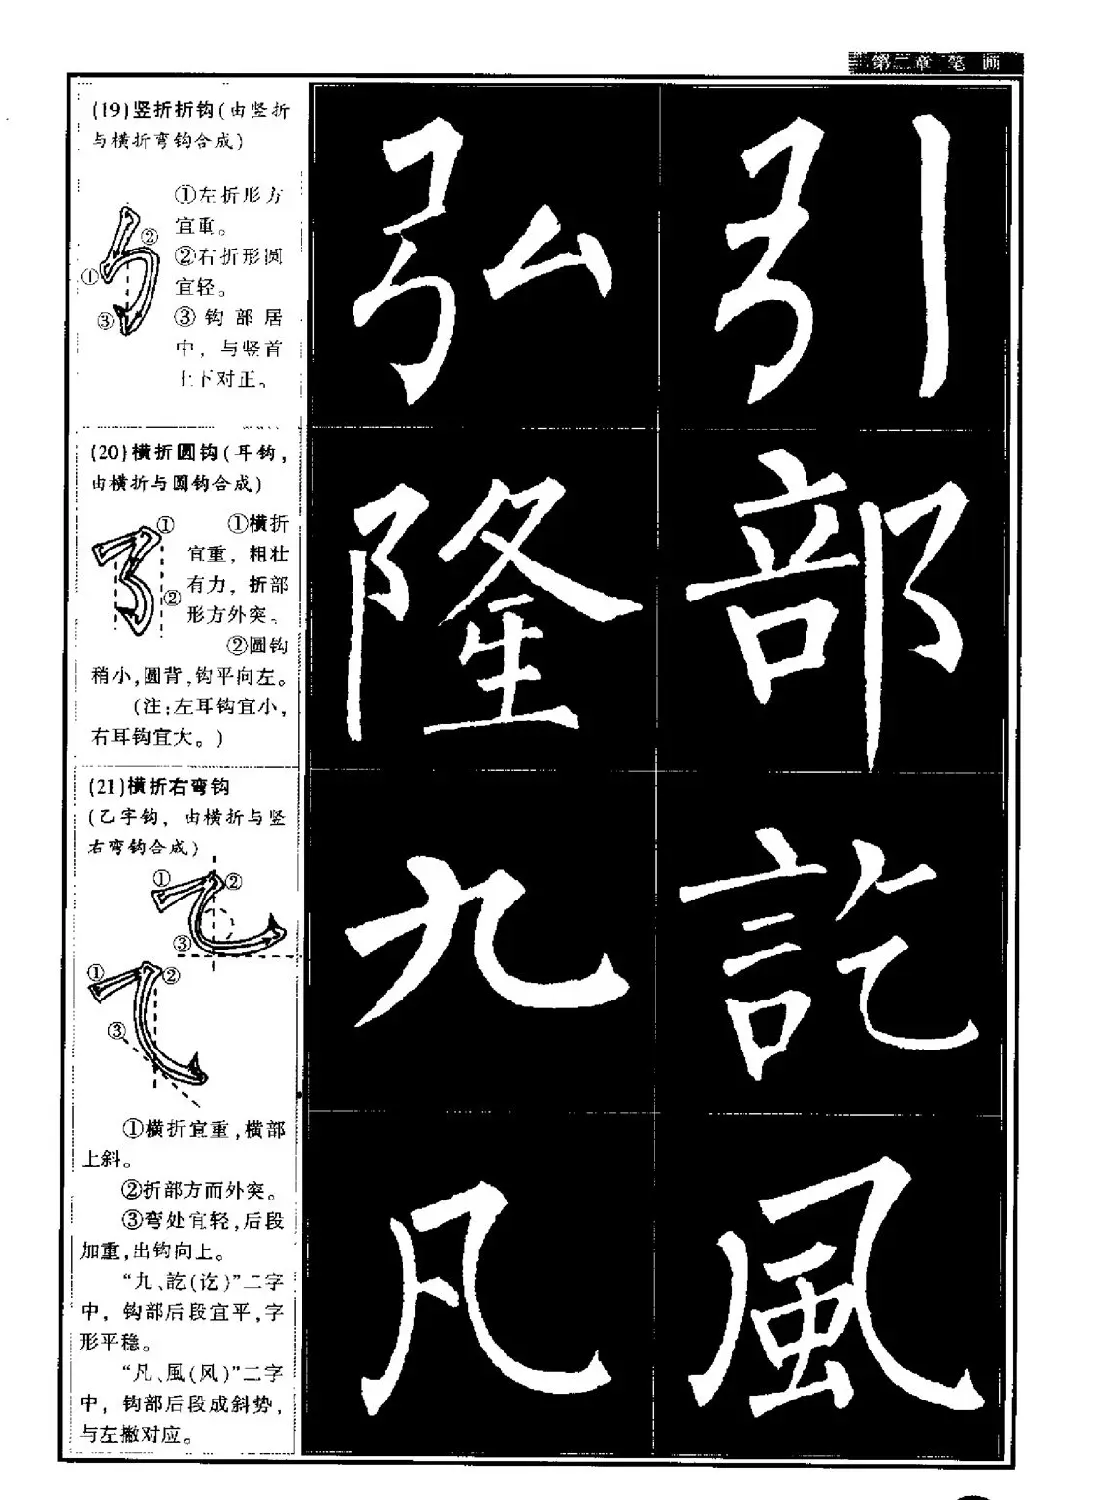 第二章 笔画
(19)竖折折钩(由竖折
与横折弯钩合成)
①左折形方
宜重。
②右折形圆
宜轻。
③钩部居
中，与竖首
上下对正。
①
②
③
弘 引
(20)横折圆钩(耳钩，
由横折与圆钩合成)
①横折
宜重，粗壮
有力，折部
形方外突。
②圆钩
稍小，圆背，钩平向左。
(注：左耳钩宜小，
右耳钩宜大。)
①
②
隆 部
(21)横折右弯钩
(乙字钩，由横折与竖
右弯钩合成)
① ②
③
① ②
③
①横折宜重，横部
上斜。
②折部方而外突。
③弯处宜轻，后段
加重，出钩向上。
“九、訖(讫)”二字
中，钩部后段宜平，字
形平稳。
“凡、風(风)”二字
中，钩部后段成斜势，
与左撇对应。
九 訖
凡 風